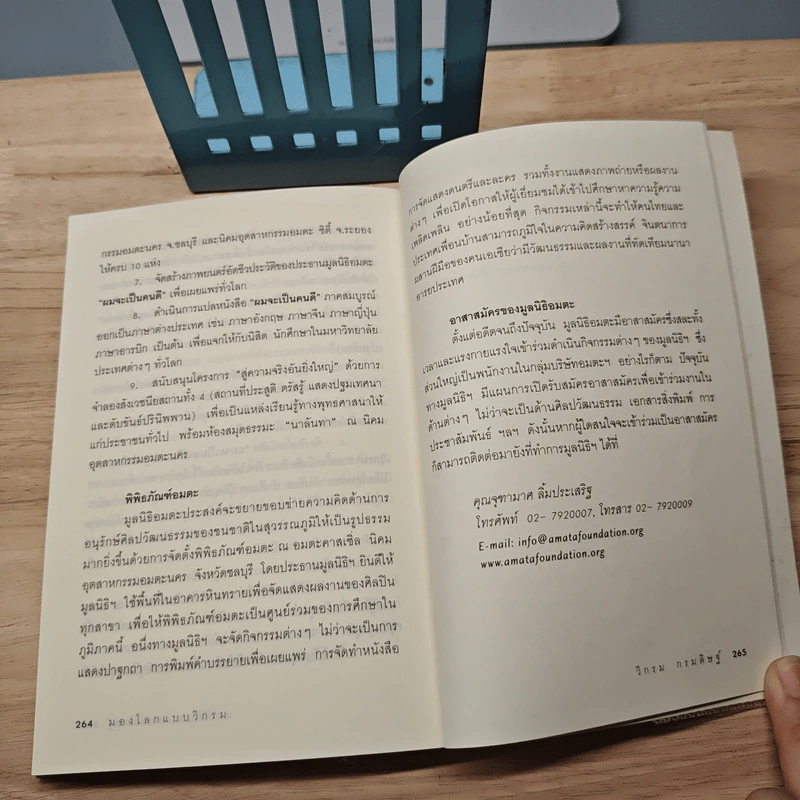 กรรมอมตะนคร จ.ชลบุรี และนิคมอุตสาหกรรมอมตะ ซิตี้ จ.ระยอง
ให้ครบ 10 แห่ง
7. จัดสร้างภาพยนตร์อัตชีวประวัติของประธานมูลนิธิอมตะ
"ผมจะเป็นคนดี" เพื่อเผยแพร่ทั่วโลก
8. ดำเนินการแปลหนังสือ "ผมจะเป็นคนดี" ภาคสมบูรณ์
ออกเป็นภาษาต่างประเทศ เช่น ภาษาอังกฤษ ภาษาจีน ภาษาญี่ปุ่น
ภาษาอารบิก เป็นต้น เพื่อแจกให้กับนิสิต นักศึกษาในมหาวิทยาลัย
ประเทศต่างๆ ทั่วโลก
9. สนับสนุนโครงการ "สู่ความจริงอันยิ่งใหญ่" ด้วยการ
จำลองสังเวชนียสถานทั้ง 4 (สถานที่ประสูติ ตรัสรู้ แสดงปฐมเทศนา
และดับขันธ์ปรินิพพาน) เพื่อเป็นแหล่งเรียนรู้ทางพุทธศาสนาให้
แก่ประชาชนทั่วไป พร้อมห้องสมุดธรรมะ "นาลันทา" ณ นิคม
อุตสาหกรรมอมตะนคร
พิพิธภัณฑ์อมตะ
มูลนิธิอมตะประสงค์จะขยายขอบข่ายความคิดด้านการ
อนุรักษ์ศิลปวัฒนธรรมของชนชาติในสุวรรณภูมิให้เป็นรูปธรรม
มากยิ่งขึ้นด้วยการจัดตั้งพิพิธภัณฑ์อมตะ ณ อมตะคาสเซิล นิคม
อุตสาหกรรมอมตะนคร จังหวัดชลบุรี โดยประธานมูลนิธิฯ ยินดีให้
มูลนิธิฯ ใช้พื้นที่ในอาคารหินทรายเพื่อจัดแสดงผลงานของศิลปิน
ทุกสาขา เพื่อให้พิพิธภัณฑ์อมตะเป็นศูนย์รวมของการศึกษาใน
ภูมิภาคนี้ อนึ่งทางมูลนิธิฯ จะจัดกิจกรรมต่างๆ ไม่ว่าจะเป็นการ
แสดงปาฐกถา การพิมพ์คำบรรยายเพื่อเผยแพร่ การจัดทำหนังสือ
264 มองโลกแบบวิกรม
การจัดแสดงดนตรีและละคร รวมทั้งงานแสดงภาพถ่ายหรือผลงาน
ต่างๆ เพื่อเปิดโอกาสให้ผู้เยี่ยมชมได้เข้าไปศึกษาหาความรู้ความ
เพลิดเพลิน อย่างน้อยที่สุด กิจกรรมเหล่านี้จะทำให้คนไทยและ
ประเทศเพื่อนบ้านสามารถภูมิใจในความคิดสร้างสรรค์ จินตนาการ
ผสานฝีมือของคนเอเชียว่ามีวัฒนธรรมและผลงานที่ทัดเทียมนานา
อารยประเทศ
อาสาสมัครของมูลนิธิอมตะ
ตั้งแต่อดีตจนถึงปัจจุบัน มูลนิธิอมตะมีอาสาสมัครซึ่งสละทั้ง
เวลาและแรงกายแรงใจเข้าร่วมดำเนินกิจกรรมต่างๆ ของมูลนิธิฯ ซึ่ง
ส่วนใหญ่เป็นพนักงานในกลุ่มบริษัทอมตะฯ อย่างไรก็ตาม ปัจจุบัน
ทางมูลนิธิฯ มีแผนการเปิดรับสมัครอาสาสมัครเพื่อเข้าร่วมงานใน
ด้านต่างๆ ไม่ว่าจะเป็นด้านศิลปวัฒนธรรม เอกสารสิ่งพิมพ์ การ
ประชาสัมพันธ์ ฯลฯ ดังนั้นหากผู้ใดสนใจจะเข้าร่วมเป็นอาสาสมัคร
ก็สามารถติดต่อมายังที่ทำการมูลนิธิฯ ได้ที่
คุณจุฑามาศ ลิ้มประเสริฐ
โทรศัพท์ 02- 7920007, โทรสาร 02- 7920009
E-mail: info@amatafoundation.org
www.amatafoundation.org
วิกรม กรมดิษฐ์ 265